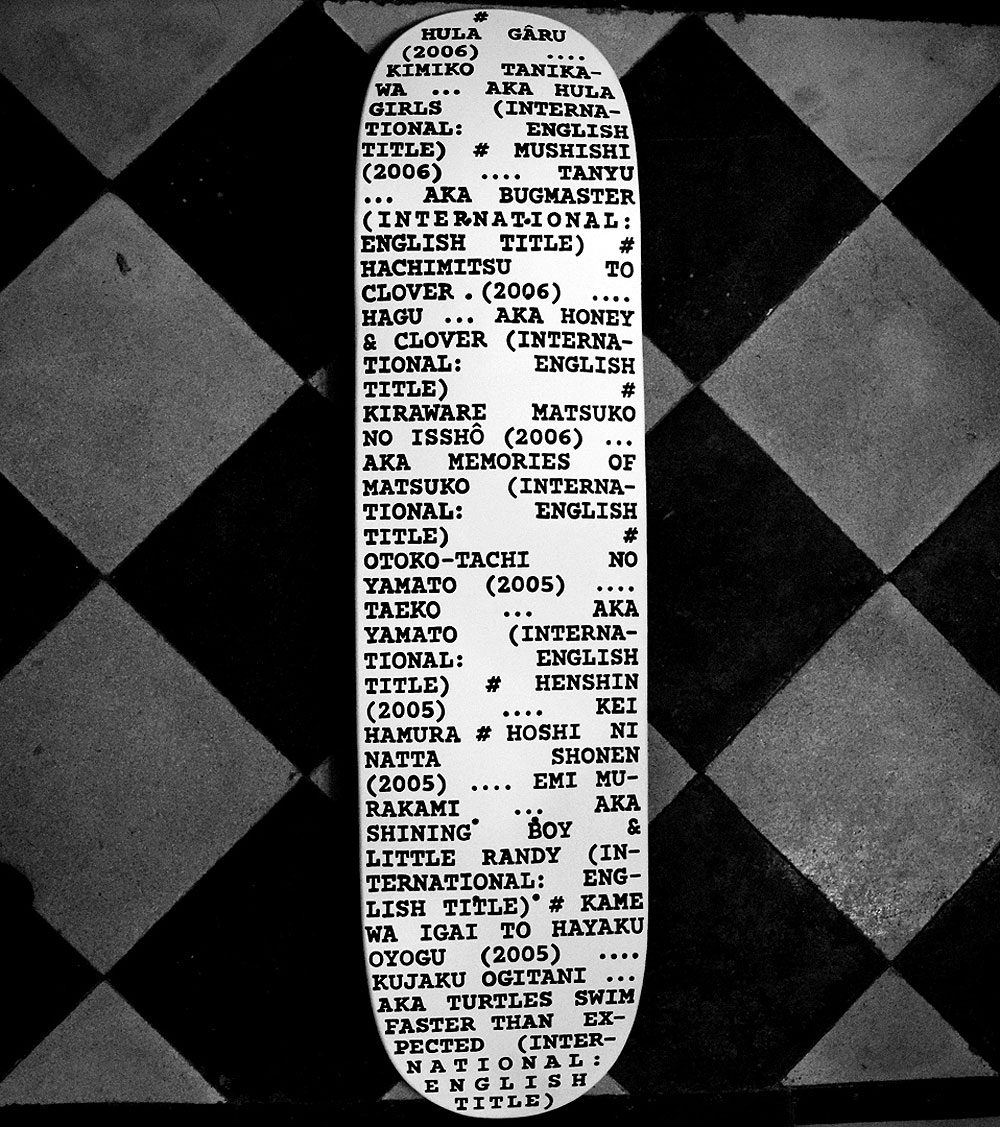 #
HULA GÂRU
(2006) ....
KIMIKO TANIKA-
WA ... AKA HULA
GIRLS (INTERNA-
TIONAL: ENGLISH
TITLE) # MUSHISHI
(2006) .... TANYU
... AKA BUGMASTER
(INTERNATIONAL:
ENGLISH TITLE) #
HACHIMITSU TO
CLOVER . (2006) ....
HAGU ... AKA HONEY
& CLOVER (INTERNA-
TIONAL: ENGLISH
TITLE) #
KIRAWARE MATSUKO
NO ISSHÔ (2006) ...
AKA MEMORIES OF
MATSUKO (INTERNA-
TIONAL: ENGLISH
TITLE) #
OTOKO-TACHI NO
YAMATO (2005) ....
TAEKO ... AKA
YAMATO (INTERNA-
TIONAL: ENGLISH
TITLE) # HENSHIN
(2005) .... KEI
HAMURA # HOSHI NI
NATTA SHONEN
(2005) .... EMI MU-
RAKAMI ... AKA
SHINING BOY &
LITTLE RANDY (IN-
TERNATIONAL: ENG-
LISH TITLE) # KAME
WA IGAI TO HAYAKU
OYOGU (2005) ....
KUJAKU OGITANI ...
AKA TURTLES SWIM
FASTER THAN EX-
PECTED (INTER-
NATIONAL:
ENGLISH
TITLE)